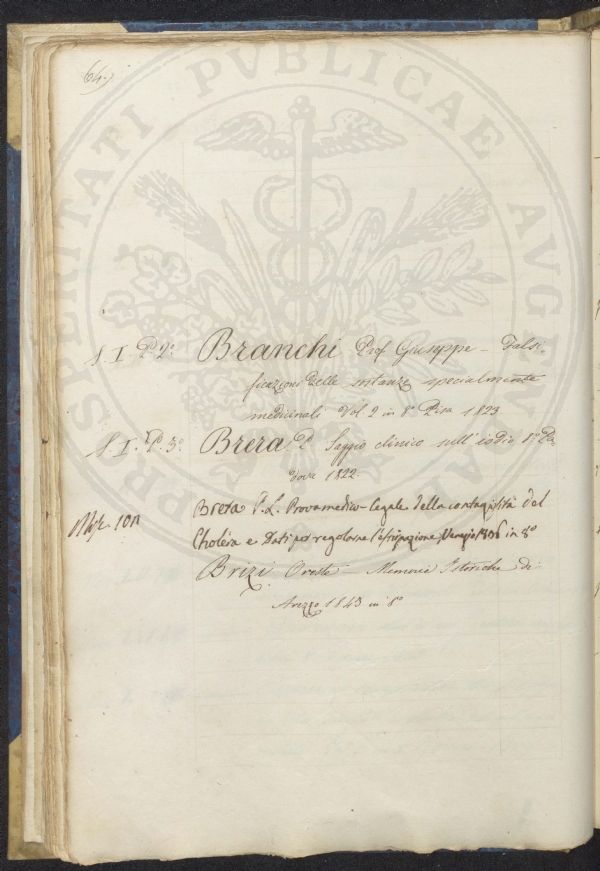 64.
PROSPERITATI PVBLICAE AVGENDAE
S. I. P. 2º. Branchi Prof Giuseppe - Falsi-
ficazioni delle sostanze specialmente
medicinali Vol 2 in 8º Pisa 1823
S. I. P. 3º. Brera Saggio clinico sull'iodio 8º Pa-
dova 1822.
Brera P. L. Prova medico-legale della contagiosità del
Cholera e Dati per regolarne 1836 in 8º
Brizi Oreste - Memorie Istoriche di
Arezzo 1843 in 8º